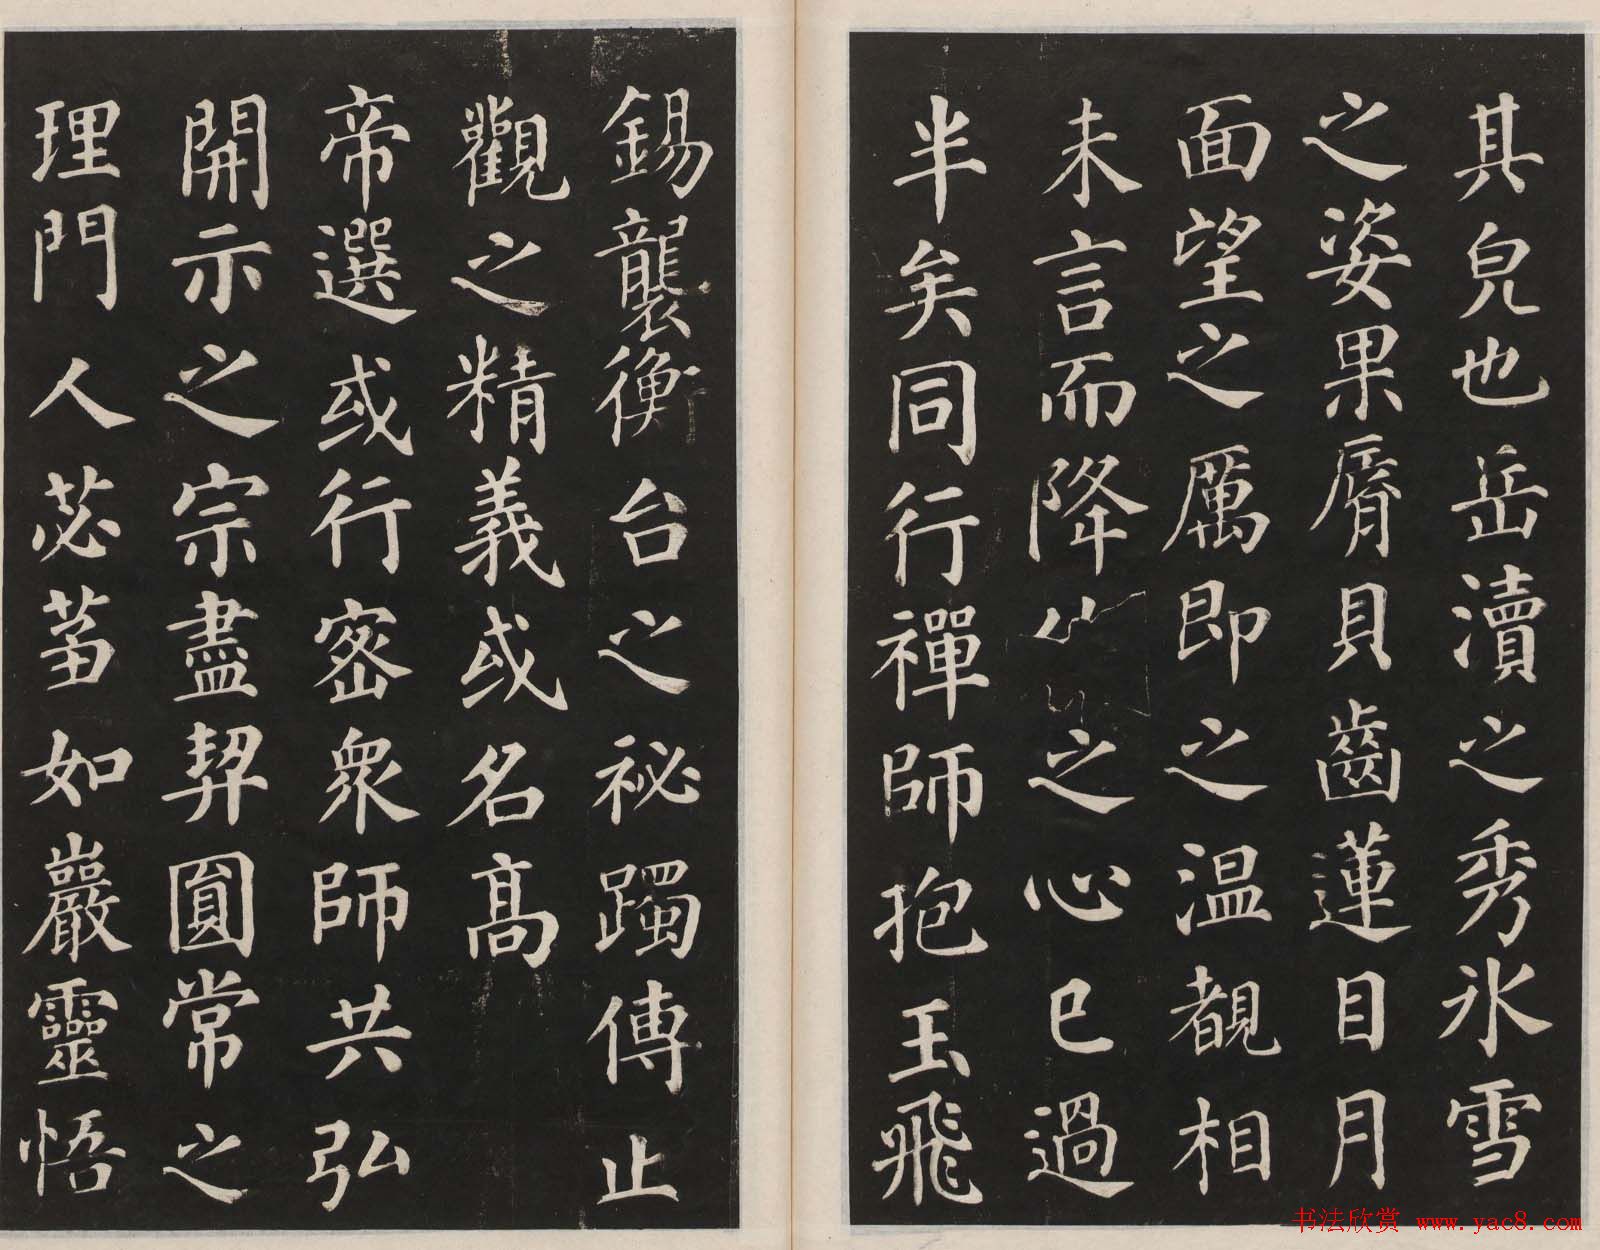 其皃也岳瀆之秀氷雪
之姿果脣貝齒蓮目月
面望之厲即之温覩相
未言而降之心已過
半矣同行禪師抱玉飛
錫襲衡台之祕躅傳止
觀之精義或名高
帝選或行密衆師共弘
開示之宗盡契圎常之
理門人苾蒭如巖靈悟
书法欣赏 www.yac8.com